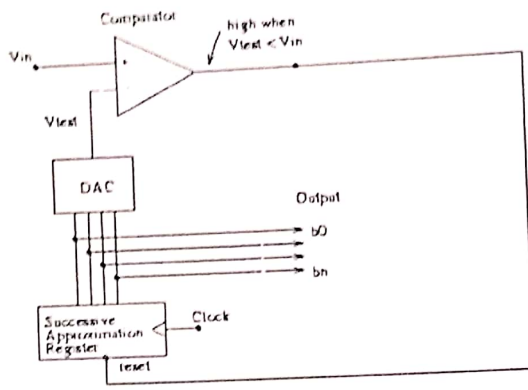 Comparator
high when
Vtest < Vin
Vin
Vtest
DAC
Output
b0
bn
Clock
Successive
Approximation
Register
reset